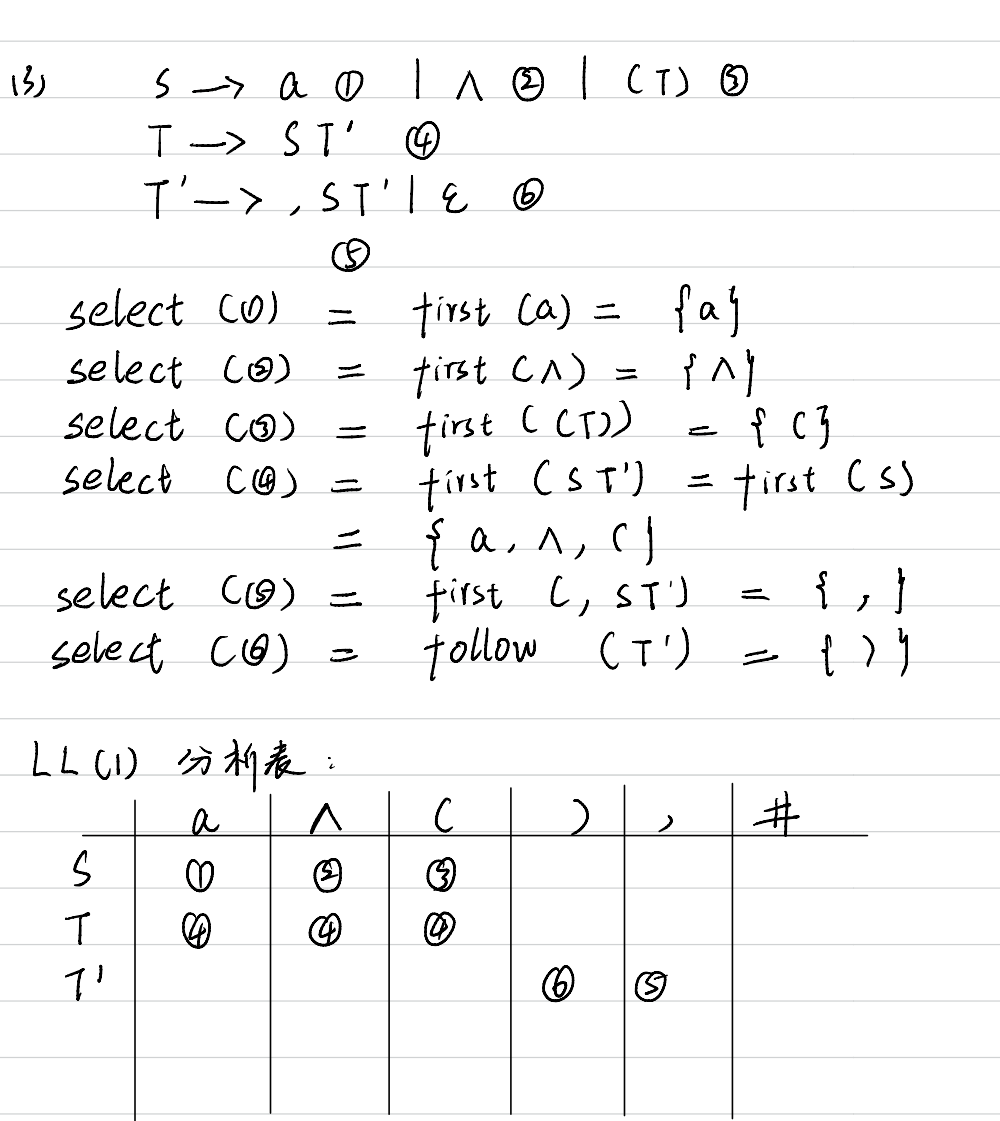 (3) S → a ① | ∧ ② | (T) ③
T → ST' ④
T' → , ST' | ε ⑥
⑤
select (①) = first (a) = {a}
select (②) = first (∧) = {∧}
select (③) = first ((T)) = {(}
select (④) = first (ST') = first (S)
= {a, ∧, (}
select (⑤) = first (, ST') = {,}
select (⑥) = follow (T') = {)}
LL(1) 分析表:
a ∧ ( ) , #
S ① ② ③
T ④ ④ ④
T' ⑥ ⑤